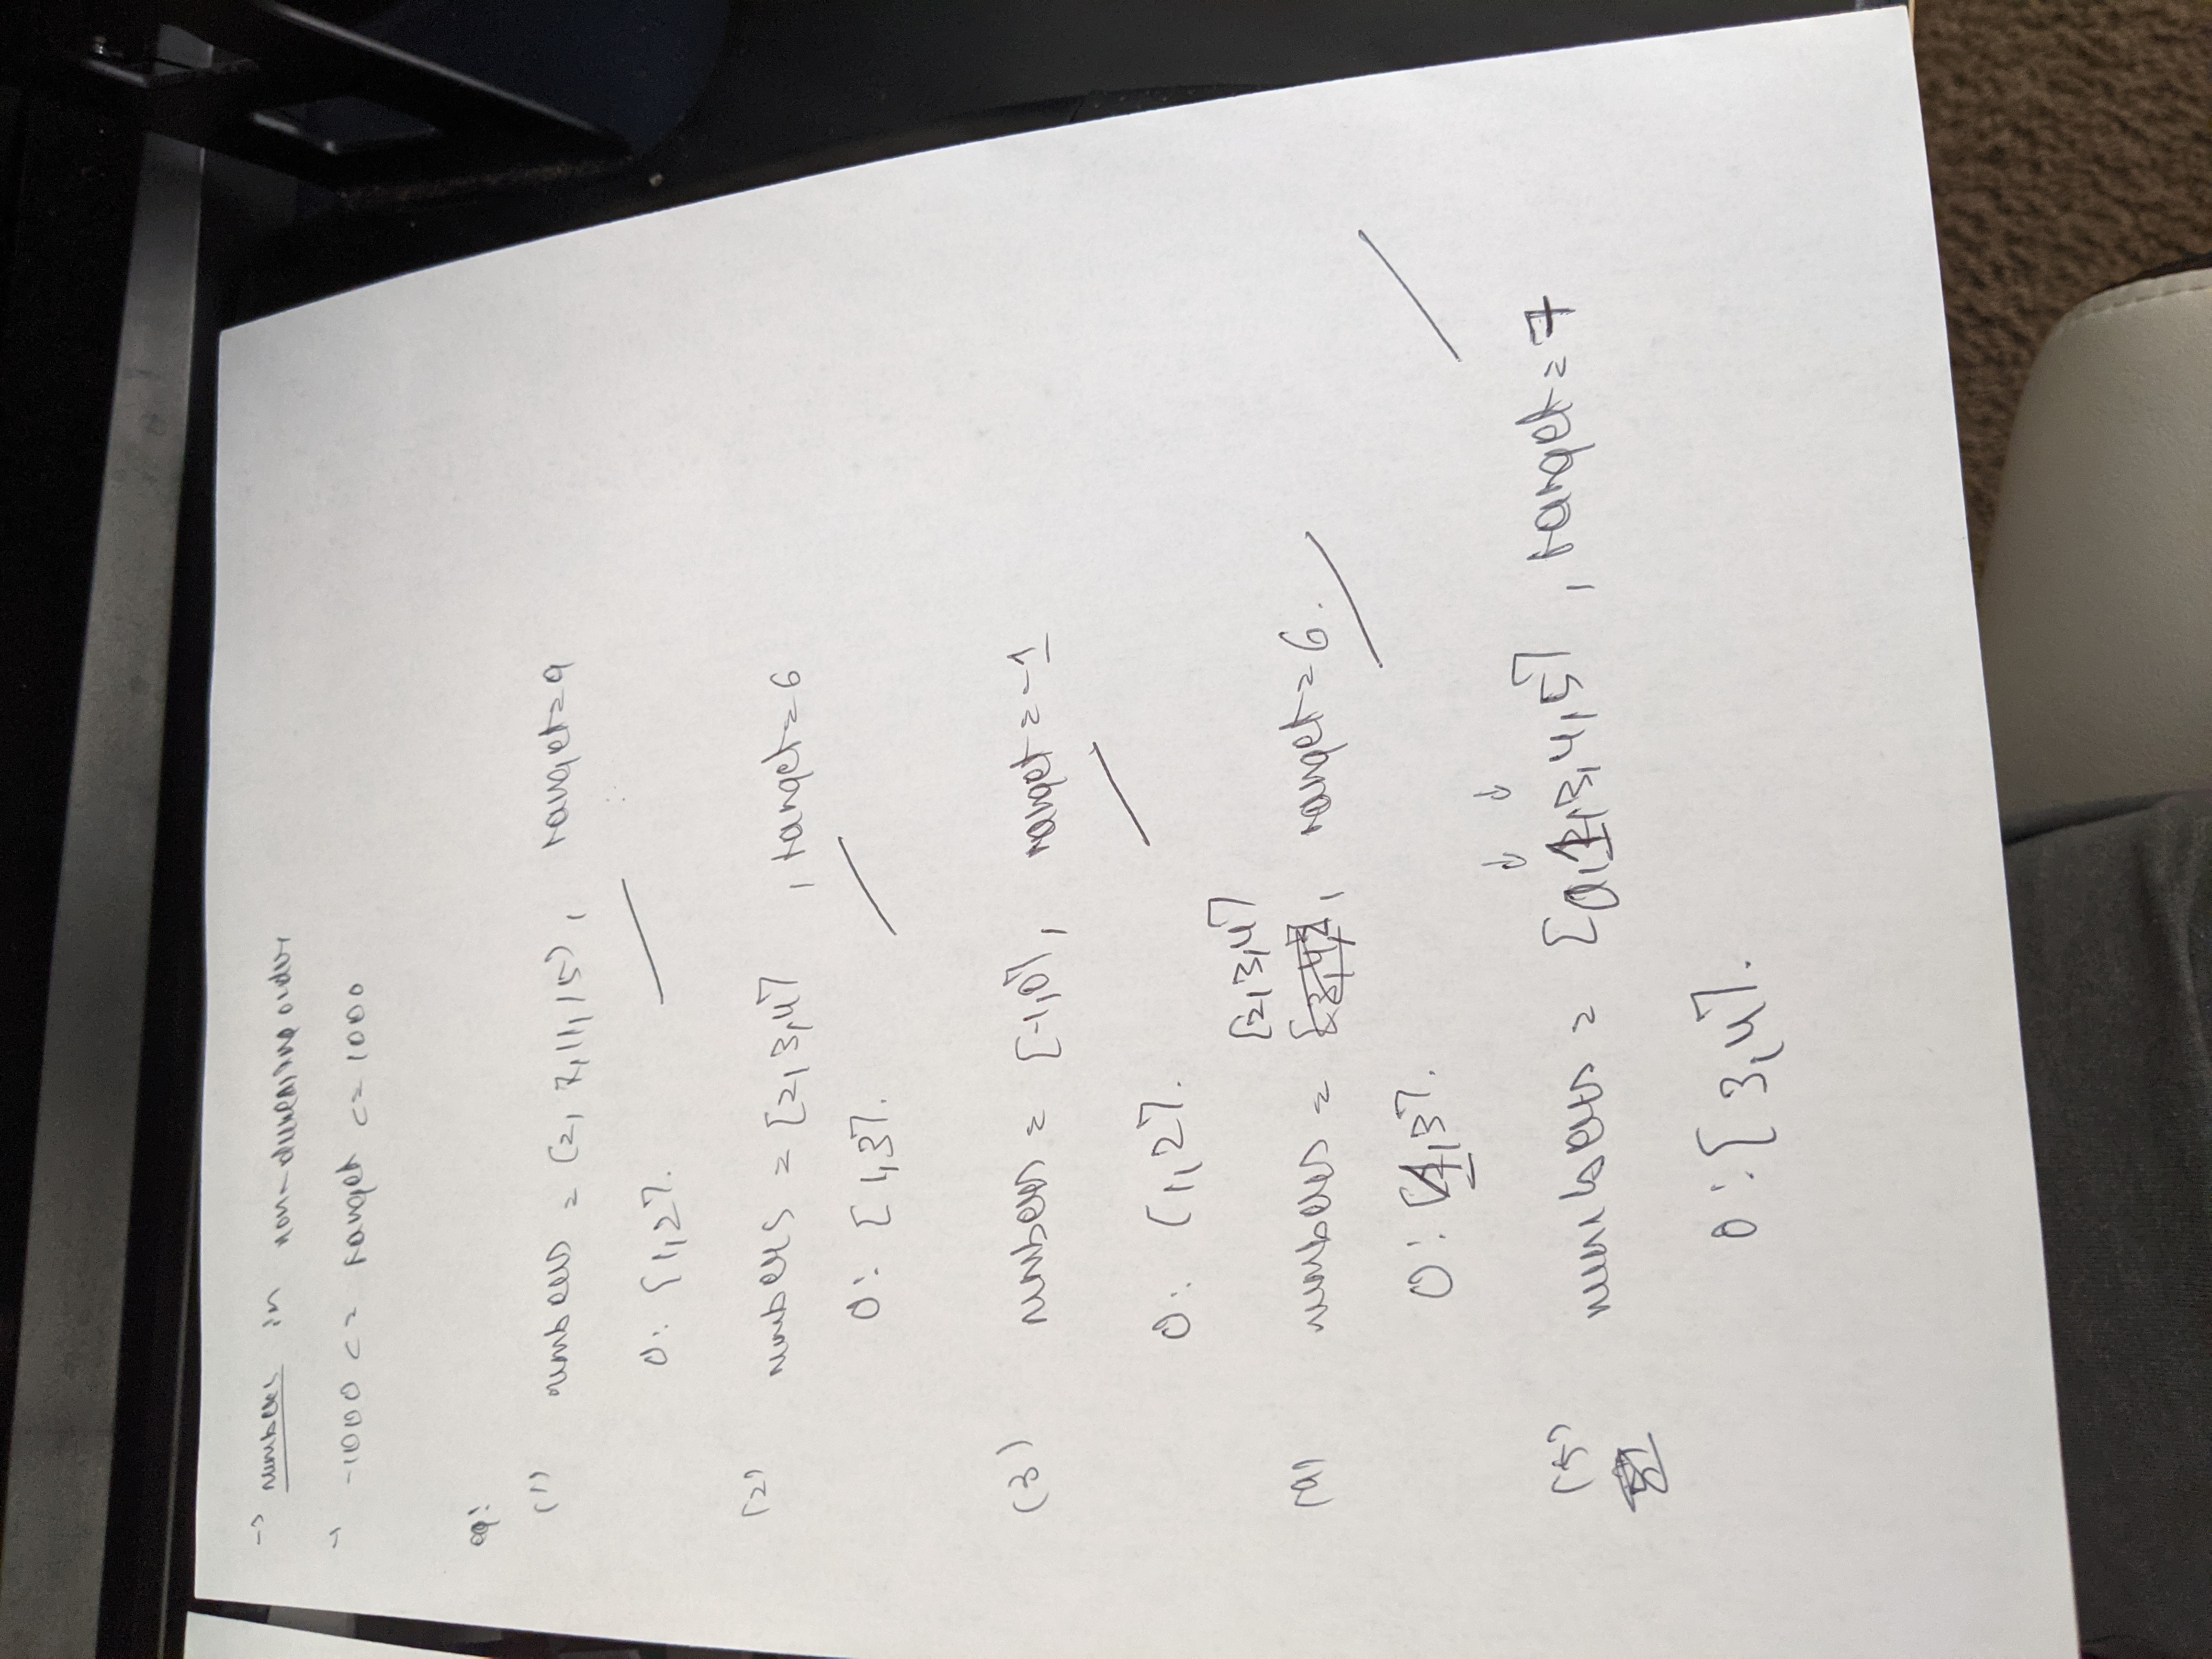 -> numbers in non-decreasing order
-> -1000 <= target <= 1000
eg:
(1) numbers = [2, 7, 11, 15], target = 9
O: [1,2].
(2) numbers = [2,3,4], target = 6
O: [1,3].
(3) numbers = [-1,0], target = -1
O: [1,2].
[2,3,4]
(4) numbers = , target = 6.
O: [1,3].
(5) numbers = [0,1,3,4,5], target = 7
O: [3,4].